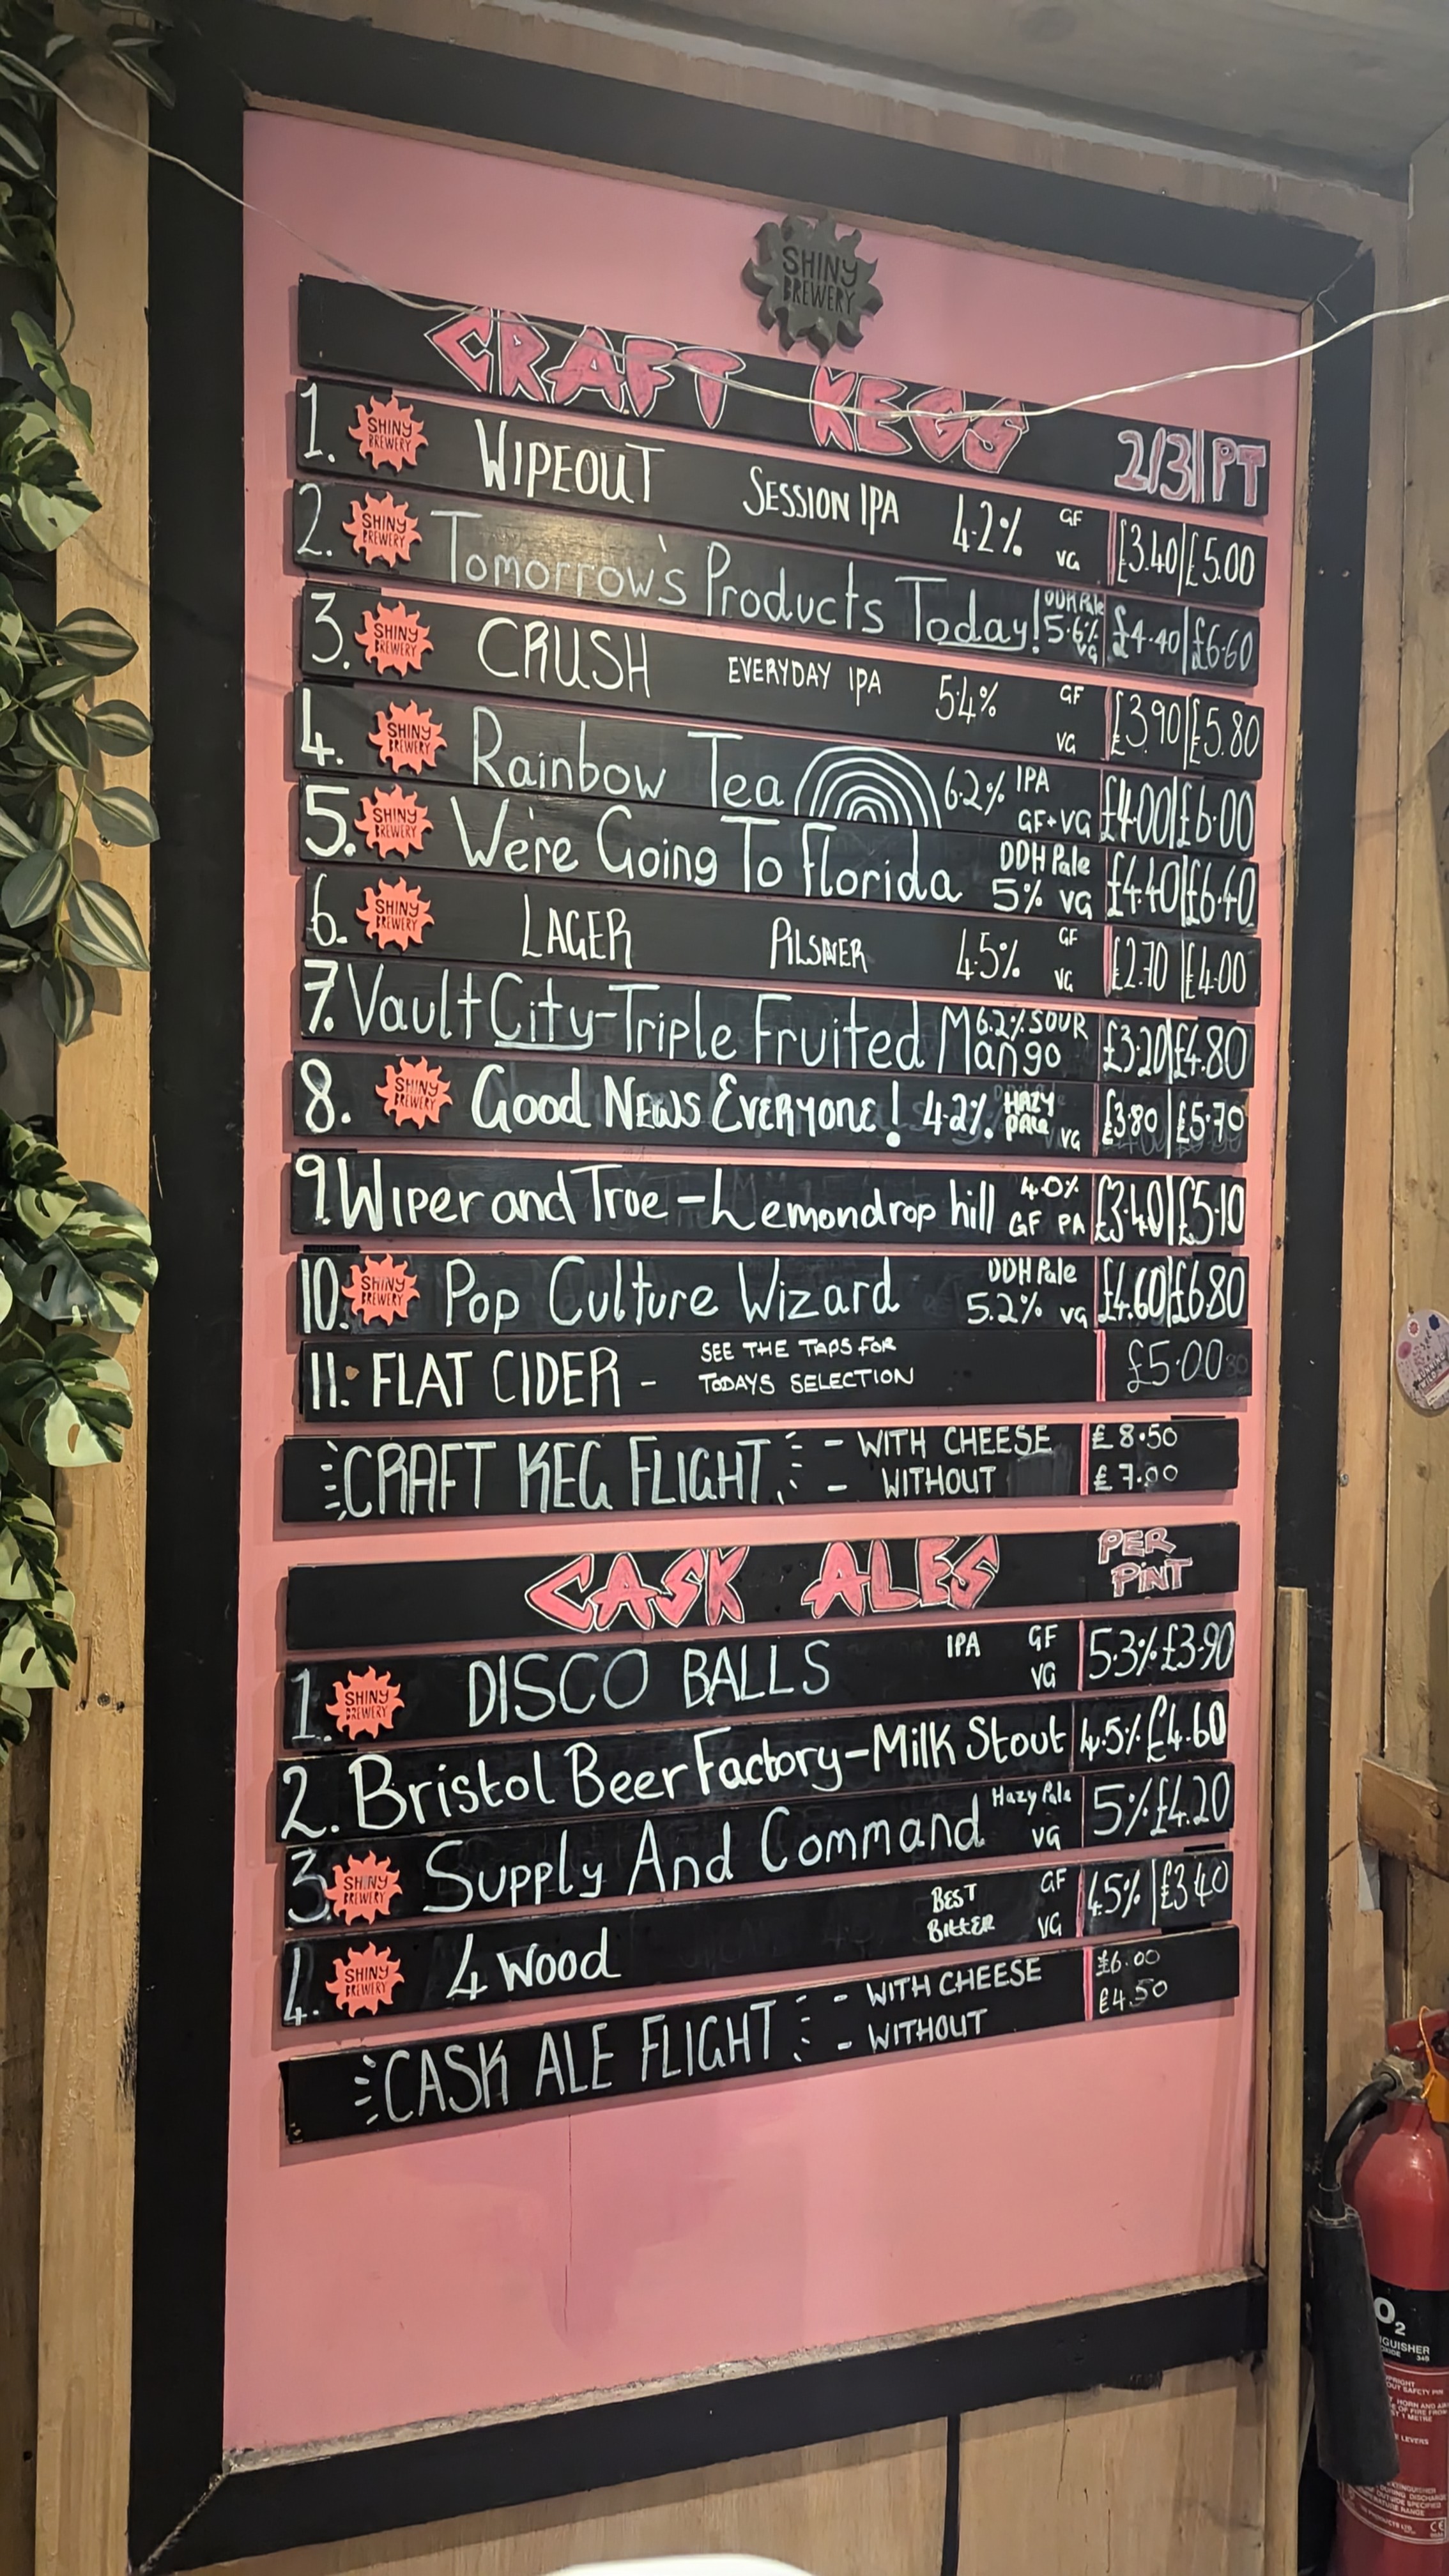 SHINY
BREWERY
CRAFT KEGS 2/3|PT
1. SHINY BREWERY WIPEOUT SESSION IPA 4.2% GF VG £3.40|£5.00
2. SHINY BREWERY Tomorrow's Products Today! DDH Pale 5.6% VG £4.40|£6.60
3. SHINY BREWERY CRUSH EVERYDAY IPA 5.4% GF VG £3.90|£5.80
4. SHINY BREWERY Rainbow Tea 6.2% IPA GF+VG £4.00|£6.00
5. SHINY BREWERY We're Going To Florida DDH Pale 5% VG £4.40|£6.40
6. SHINY BREWERY LAGER PILSNER 4.5% GF VG £2.70|£4.00
7. Vault City-Triple Fruited Mango 6.2% SOUR £3.20|£4.80
8. SHINY BREWERY Good News Everyone! 4.2% HAZY PALE VG £3.80|£5.70
9. Wiper and True - Lemondrop hill 4.0% GF PA £3.40|£5.10
10. SHINY BREWERY Pop Culture Wizard DDH Pale 5.2% VG £4.60|£6.80
11. FLAT CIDER - SEE THE TAPS FOR TODAYS SELECTION £5.00
CRAFT KEG FLIGHT - WITH CHEESE £8.50
- WITHOUT £7.00
CASK ALES PER PINT
1. SHINY BREWERY DISCO BALLS IPA GF VG 5.3% £3.90
2. Bristol Beer Factory-Milk Stout 4.5% £4.60
3. SHINY BREWERY Supply And Command Hazy Pale VG 5% £4.20
4. SHINY BREWERY 4 Wood BEST BITTER GF VG 4.5% | £3.40
CASK ALE FLIGHT - WITH CHEESE £6.00
- WITHOUT £4.50
O2
GUISHER